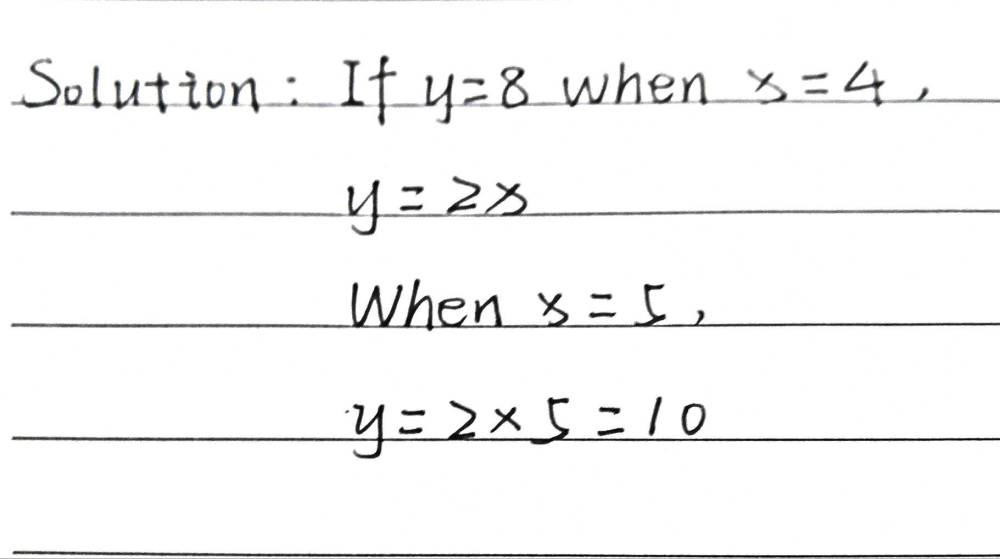 Solution: If y=8 when x=4,
y=2x
When x=5,
y=2×5=10